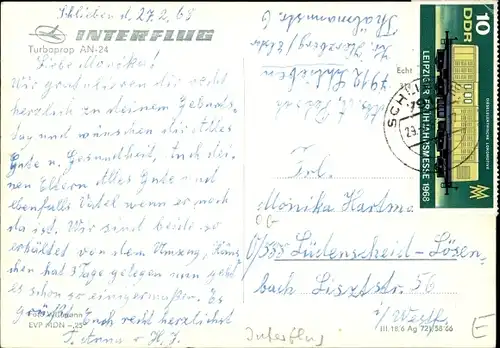 Schlieben d. 27.2.68
INTERFLUG
Turboprop AN-24
Liebe Monika!
Wir gratulieren dir recht
herzlich zu deinem Geburts-
tag und wünschen dir Alles
Gute u. Gesundheit, auch dei-
nen Eltern Alles Gute und
ebenfalls Vatel wenn er noch
da ist. Wir sind beide so
erkältet von dem Umzug,
hat 3 Tage gelegen nun geht
es schon so einigermaßen. Es
grüßt Euch recht herzlichst
T. Anna u. H. J.
EVP MDN -,25
Abs.
7912 Schlieben
Kr. Herzberg/Elster
Thälmannstr. 6
Echt
SCHLIEBEN
10
DDR
LEIPZIGER FRÜHJAHRSMESSE 1968
DIESELELEKTRISCHE LOKOMOTIVE
Frl.
Monika Hartma
D/588 Lüdenscheid-Lösen-
bach Lisztstr. 56
i/Westf.
III 18 6 Ag 721/58 66
Interflug
E